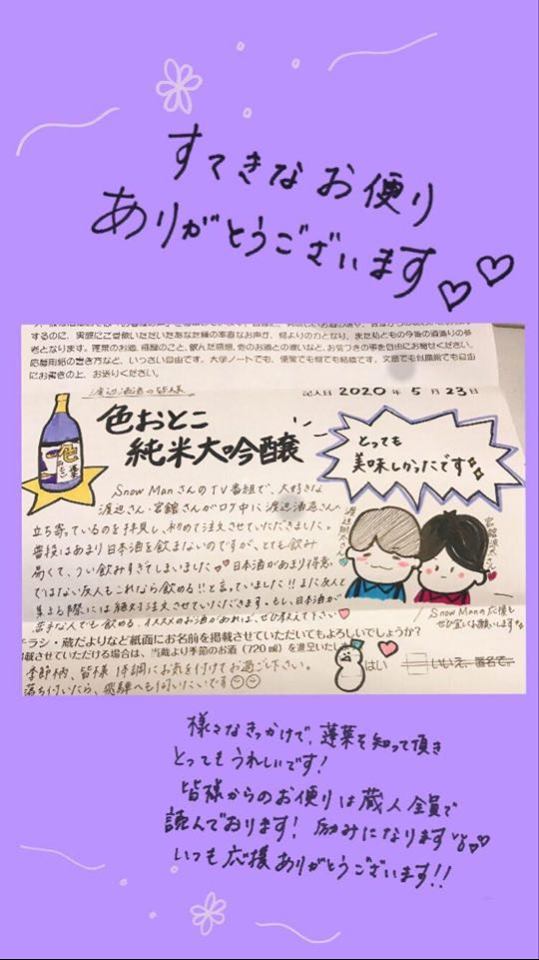 すてきなお便り
ありがとうございます
するのに、実際にご愛飲いただいたあなた様の率直なお声が、何よりの力となり、また私どもの今後の酒造りの参
考となります。蓬莱のお酒、飛騨のこと、飲んだ感想、他のお酒との違いなど、お気づきの事を自由にお寄せください。
応募用紙の書き方など、いっさい自由です。大学ノートでも、便箋でも何でも結構です。文章でも似顔絵でも自由
にお書きの上、お送りください。
渡辺酒造の皆様
記入日 2020 年 5 月 23 日
色おとこ
純米大吟醸
とっても
美味しかったです
Snow ManさんのTV番組で、大好きな
渡辺さん・宮舘さんがロケ中に渡辺酒造さんに
立ち寄っているのを拝見し、初めて注文させていただきました。
普段はあまり日本酒を飲まないのですが、とても飲み
易くて、つい飲みすぎてしまいました 日本酒があまり得意
ではない友人もこれなら飲める!!と言っていました!!また友人と
集まる際には絶対注文させていただきます。もし、日本酒が
苦手な人でも飲める、オススメのお酒があれば、ぜひ教えて下さい
渡辺翔太さん
宮舘涼太さん
Snow Manの応援も
ぜひ宜しくお願いします
チラシ・蔵だよりなど紙面にお名前を掲載させていただいてもよろしいでしょうか?
掲載させていただける場合は、当蔵より季節のお酒(720 ㎖)を進呈いたし
はい いいえ、匿名で。
季節柄、皆様 体調にお気を付けてお過ごし下さい。
落ち付いたら、飛騨へも伺いたいです
様々なきっかけで、蓬莱を知って頂き
とってもうれしいです!
皆様からのお便りは蔵人全員で
読んでおります! 励みになります
いつも応援ありがとうございます!!